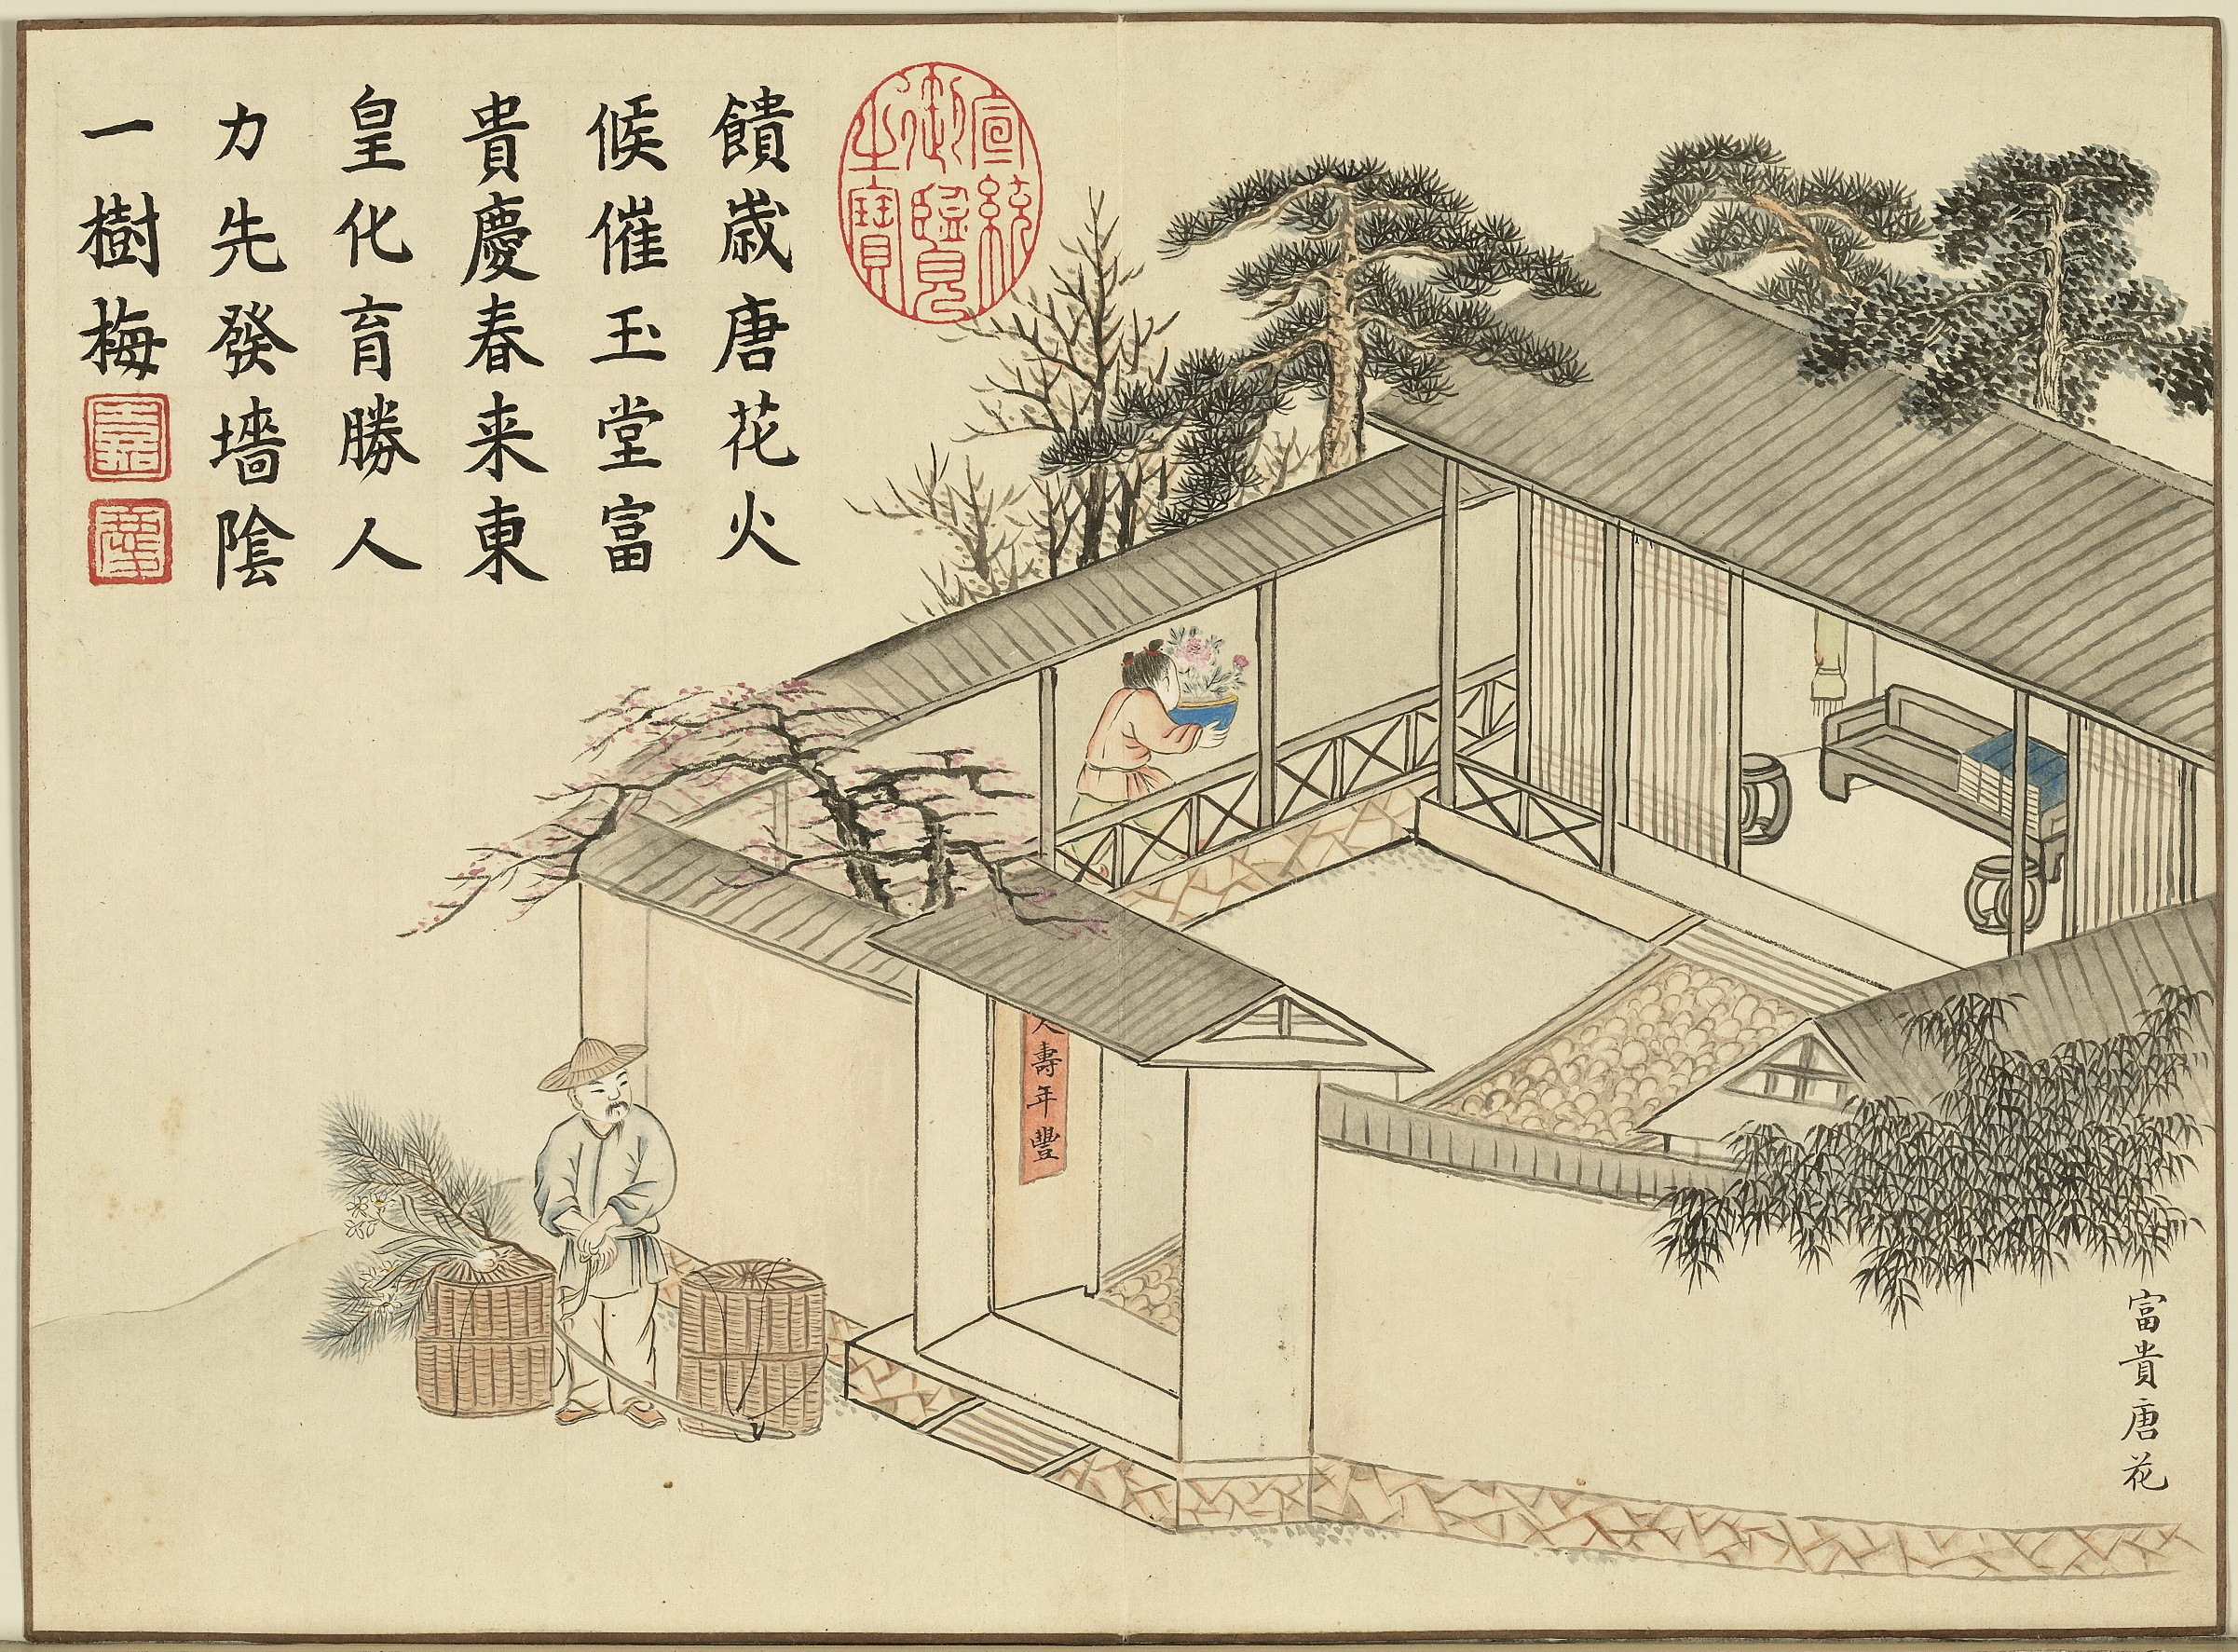 饋歳唐花火
候催玉堂富
貴慶春来東
皇化育勝人
力先發墻陰
一樹梅
宣統
御覽
之寶
人壽年豐
富貴唐花